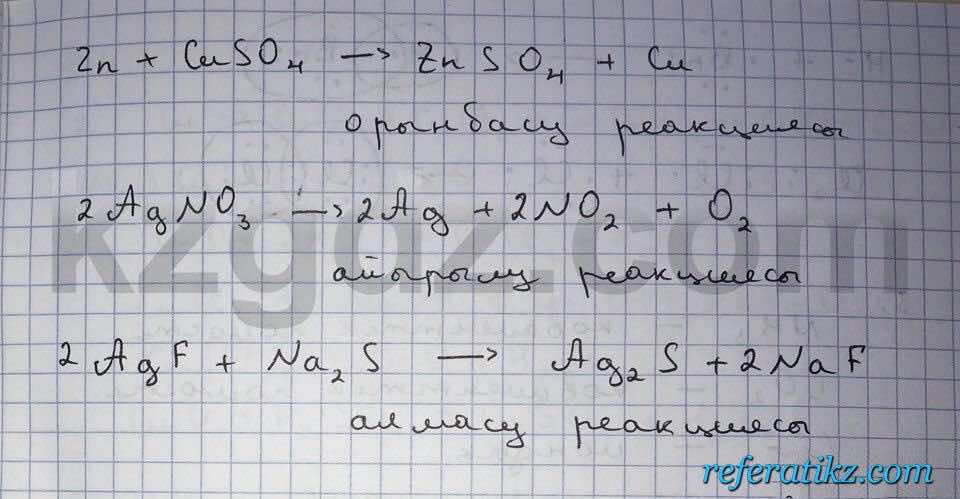 Zn + CuSO₄ → ZnSO₄ + Cu
орынбасу реакциясы
2AgNO₃ → 2Ag + 2NO₂ + O₂
айырылу реакциясы
2AgF + Na₂S → Ag₂S + 2NaF
алмасу реакциясы
kzgdz.com
referatikz.com